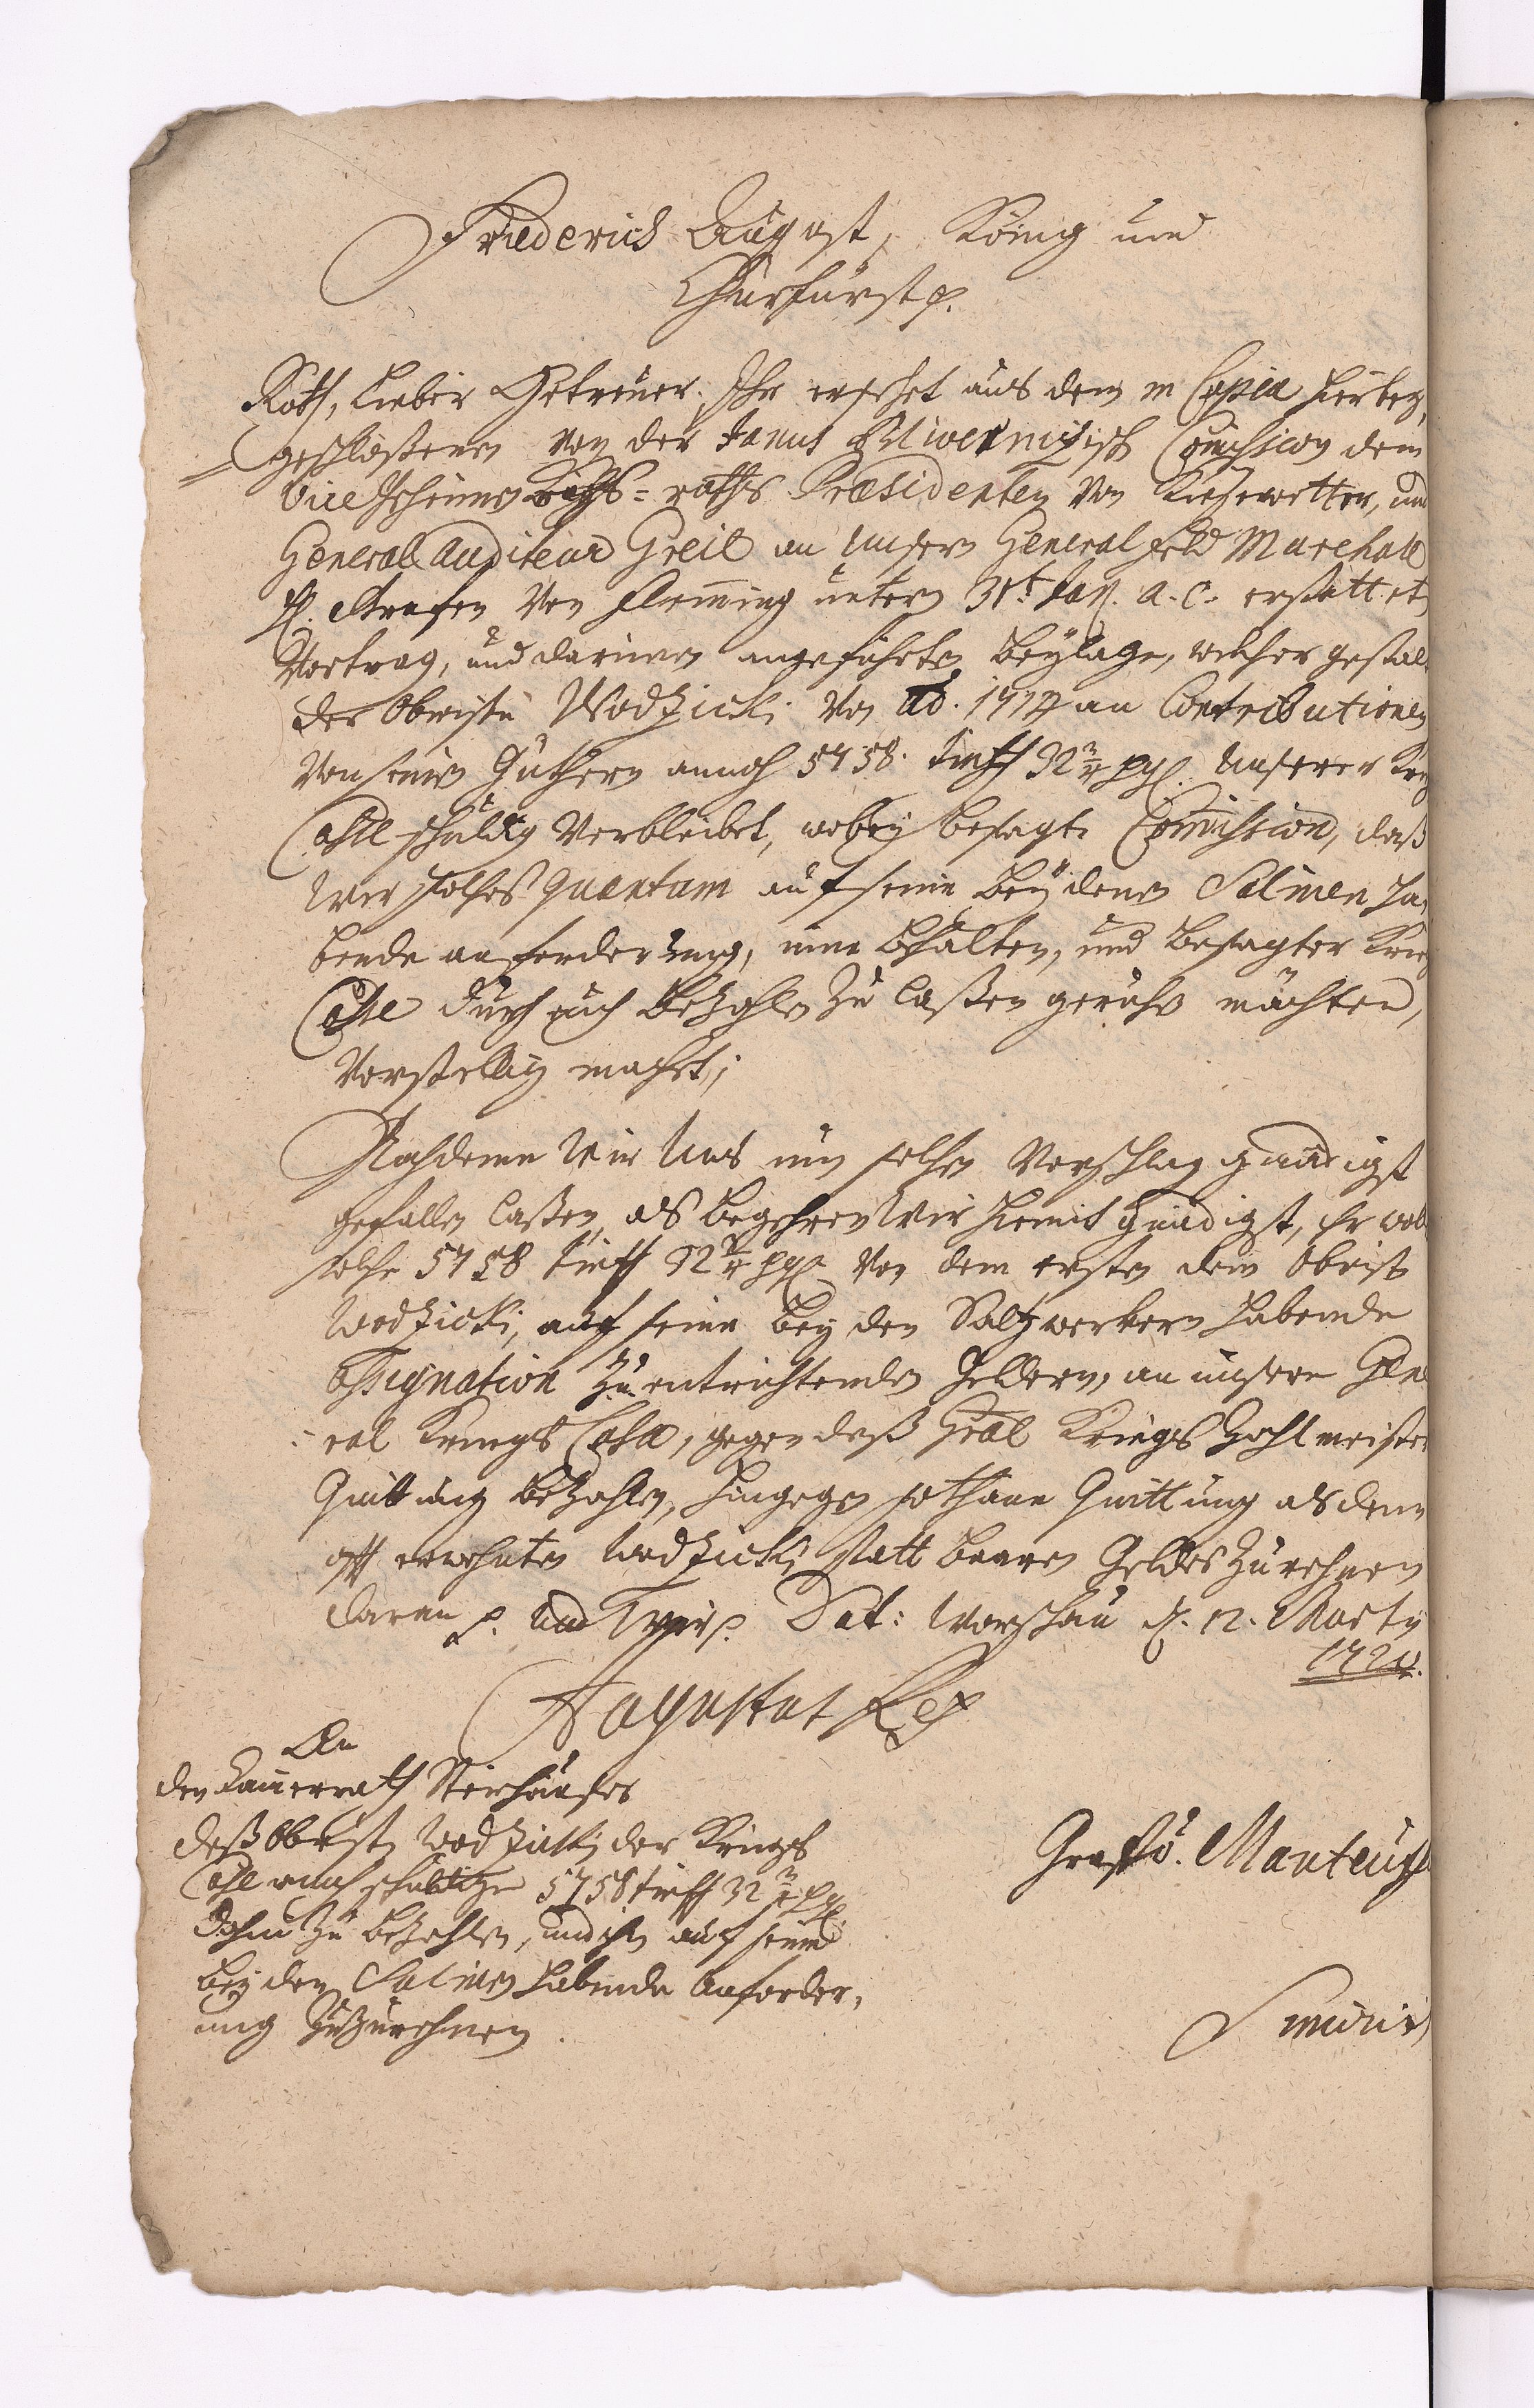 Friederich August, König und
Churfürst p.
Rath, Lieber Getreuer. Ihr ersehet aus dem in Copia hierbey,
geschloßenen von der Janus Eilwernizisch Commission dem
Vice Geheimen Kriegs=raths Præsidenten von Kiesewetter, und
General Auditeur Greil an Unsern General Feld Marchall
Grafen von Flemming unterm 31t. Jan. a. c. erstattet
Vortrag, und darinnen angeführten Beylage, welcher gestal
der Obriste Wodzicki von Ao. 1714 an Contributionen
von seinen Güthern annoch 5758. tinff 32 pgl. Unserer Krie
Casse schuldig verbleibet, wobey besagte Commission, daß
Wir solches Quantum auf seine bey denen Salinen ha,
bende anforderung, inne behalten, und besagter Krie
Casse durch euch bezahlen zu laßen geruhen möchten,
Vorstellig machet;
Nachdeme Wir Uns nun solchen Vorschlag gnädigst
gefallen laßen, als begehren Wir hiermit gnädigst, ihr woll
solche 5758 tinff 32 pgl. von dem ersten dem Obrist
Wodzicki, auf seine bey den Saltzwerkern habende
Assignation zu entrichtenden Geldern, an unsere Gene
ral Kriegs Casse, gegen deß Gral Kriegs Zahlmeister
Quittung bezahlen, hingegen sothane Quittung alsdenn
offt erwehnten Wodzicki statt baaren Geldes zurechnen
daran p. und Dat: Warschau d. 12. Marty
1720.
Augustus Rex
An
den Cammerrath Steinhäuser
deß Obrist Wodzicki der Kriegs
Casse annoch schuldige 5758 tinff 32 pgl.
dahin zu bezahlen, und ihm auf seine
bey den Salinen habende anforder,
ung zuzurechnen.
Graf v. Manteuffel